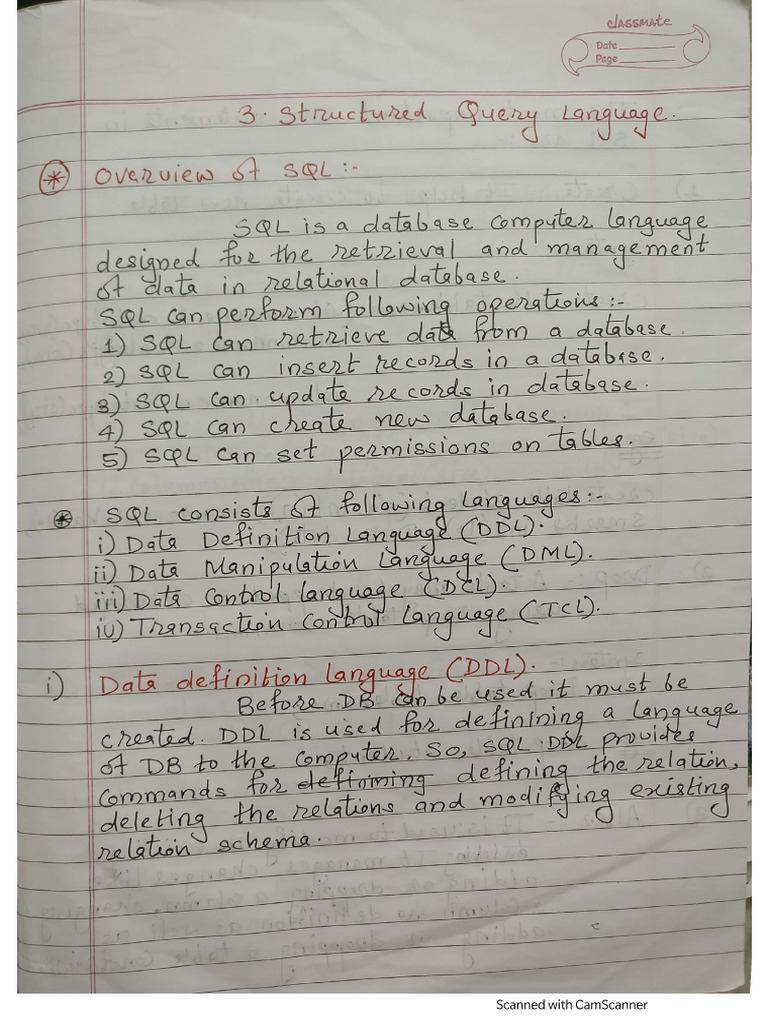 classmate
Date
Page
3. Structured Query Language.
* Overview of SQL :-
SQL is a database computer language
designed for the retrieval and management
of data in relational database.
SQL can perform following operations :-
1) SQL can retrieve data from a database.
2) SQL can insert records in a database.
3) SQL can update records in database.
4) SQL can create new database.
5) SQL can set permissions on tables.
* SQL consists of following languages :-
i) Data Definition Language (DDL).
ii) Data Manipulation Language (DML).
iii) Data Control language (DCL).
iv) Transaction Control Language (TCL).
i) Data definition language (DDL).
Before DB can be used it must be
created. DDL is used for definining a language
of DB to the computer. So, SQL DDL provides
commands for definining defining the relation,
deleting the relations and modifying existing
relation schema.
Scanned with CamScanner